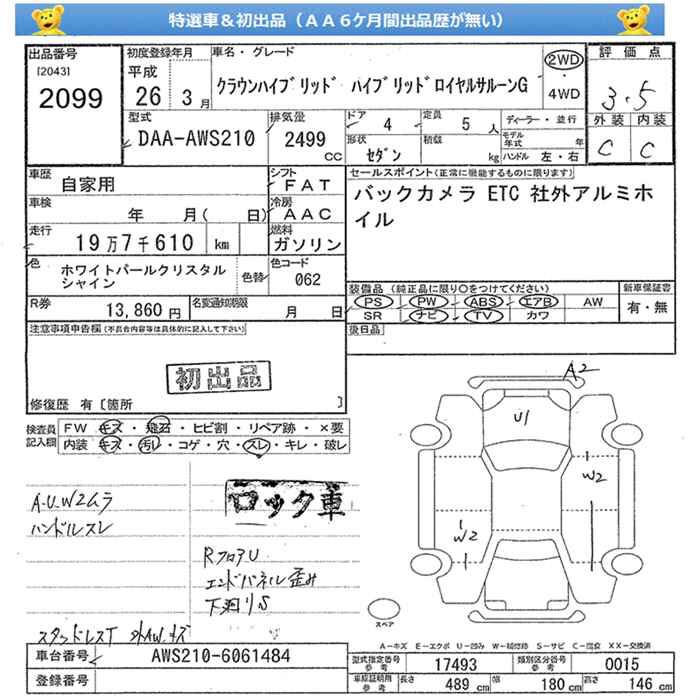 特選車＆初出品（ＡＡ６ケ月間出品歴が無い）
出品番号
[2043]
2099
初度登録年月
平成
26 3月
車名・グレード
クラウンハイブリッド ハイブリッドロイヤルサルーンG
2WD
・
4WD
評価点
3.5
外装 内装
C C
型式
DAA-AWS210
排気量
2499
CC
ドア
4
定員
5人
形状
セダン
積載
kg
ディーラー・並行
モデル年式 年
ハンドル 左・右
車歴
自家用
シフト
FAT
車検
年 月( 日)
冷房
AAC
走行
19万7千610 km
燃料
ガソリン
色
ホワイトパールクリスタル
シャイン
色替
色コード
062
R券
13,860円
名変通知期限
月 日
セールスポイント(正常に機能するものに限ります)
バックカメラ ETC 社外アルミホ
イル
装備品 (純正品に限り〇をつけてください)
PS PW ABS エアB AW
SR ナビ TV カワ
新車保証書
有・無
後日品
注意事項申告欄(不具合内容等は具体的に記入して下さい)
初出品
修復歴 有〔箇所 〕
検査員
記入欄
FW キズ・飛石・ヒビ割・リペア跡・×要
内装 キズ・汚レ・コゲ・穴・スレ・キレ・破レ
A.U.W2ムラ
ハンドルスレ
ロック車
RフロアU
エンドパネル歪み
下廻りS
スタッドレスT 外AWキズ
A2
U1
W2
W2
スペア
A-キズ E-エクボ U-凹み W-補修跡 S-サビ C-腐食 XX-交換済
車台番号
AWS210-6061484
登録番号
型式指定番号
参考
17493
類別区分番号
参考
0015
車庫証明用
参考
長さ 489 cm
幅 180 cm
高さ 146 cm